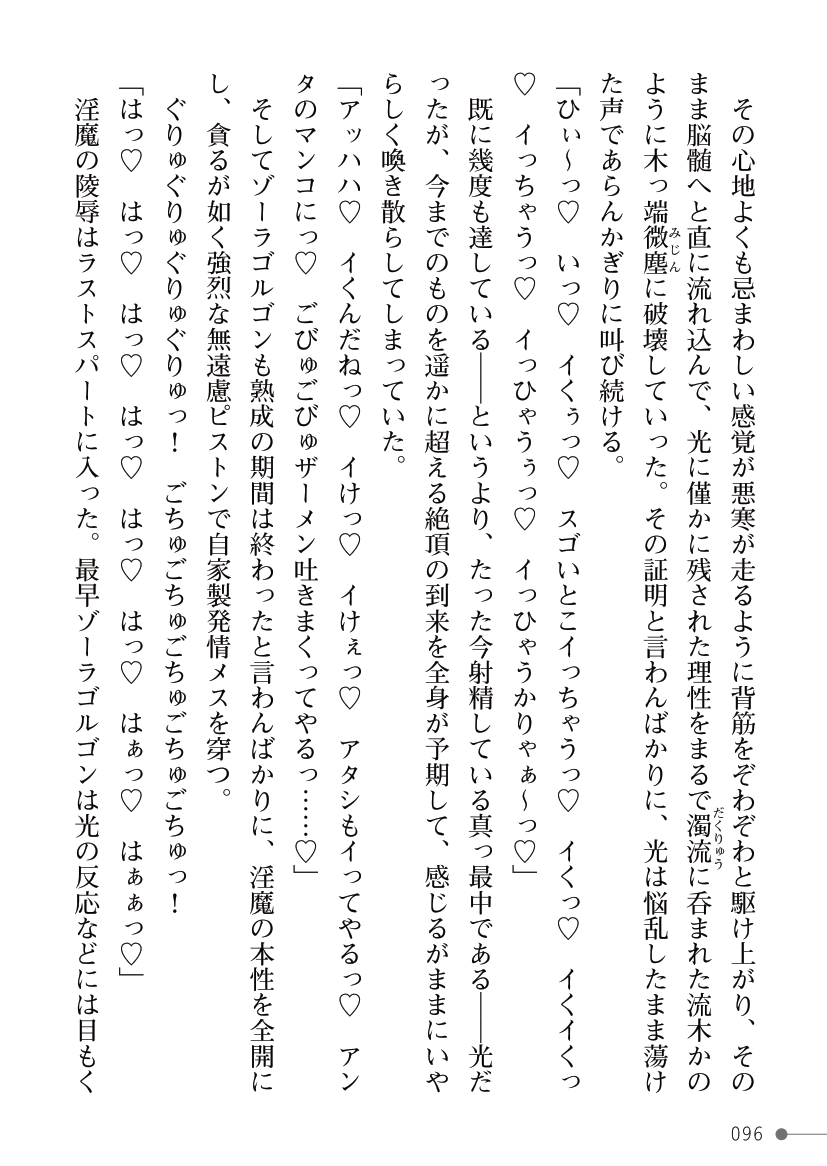 その心地よくも忌まわしい感覚が悪寒が走るように背筋をぞわぞわと駆け上がり、その
まま脳髄へと直に流れ込んで、光に僅かに残された理性をまるで濁流に呑まれた流木かの
だくりゅう
ように木っ端微塵に破壊していった。その証明と言わんばかりに、光は悩乱したまま蕩け
みじん
た声であらんかぎりに叫び続ける。
「ひぃ～っ♡　いっ♡　イくぅっ♡　スゴいとこイっちゃうっ♡　イくっ♡　イくイくっ
♡　イっちゃうっ♡　イっひゃうぅっ♡　イっひゃうかりゃぁ～っ♡」
　既に幾度も達している――というより、たった今射精している真っ最中である――光だ
ったが、今までのものを遥かに超える絶頂の到来を全身が予期して、感じるがままにいや
らしく喚き散らしてしまっていた。
「アッハハ♡　イくんだねっ♡　イけっ♡　イけぇっ♡　アタシもイってやるっ♡　アン
タのマンコにっ♡　ごびゅごびゅザーメン吐きまくってやるっ……♡」
　そしてゾーラゴルゴンも熟成の期間は終わったと言わんばかりに、淫魔の本性を全開に
し、貪るが如く強烈な無遠慮ピストンで自家製発情メスを穿つ。
　ぐりゅぐりゅぐりゅぐりゅっ！　ごちゅごちゅごちゅごちゅごちゅっ！
「はっ♡　はっ♡　はっ♡　はっ♡　はっ♡　はっ♡　はぁっ♡　はぁぁっ♡」
　淫魔の陵辱はラストスパートに入った。最早ゾーラゴルゴンは光の反応などには目もく
096